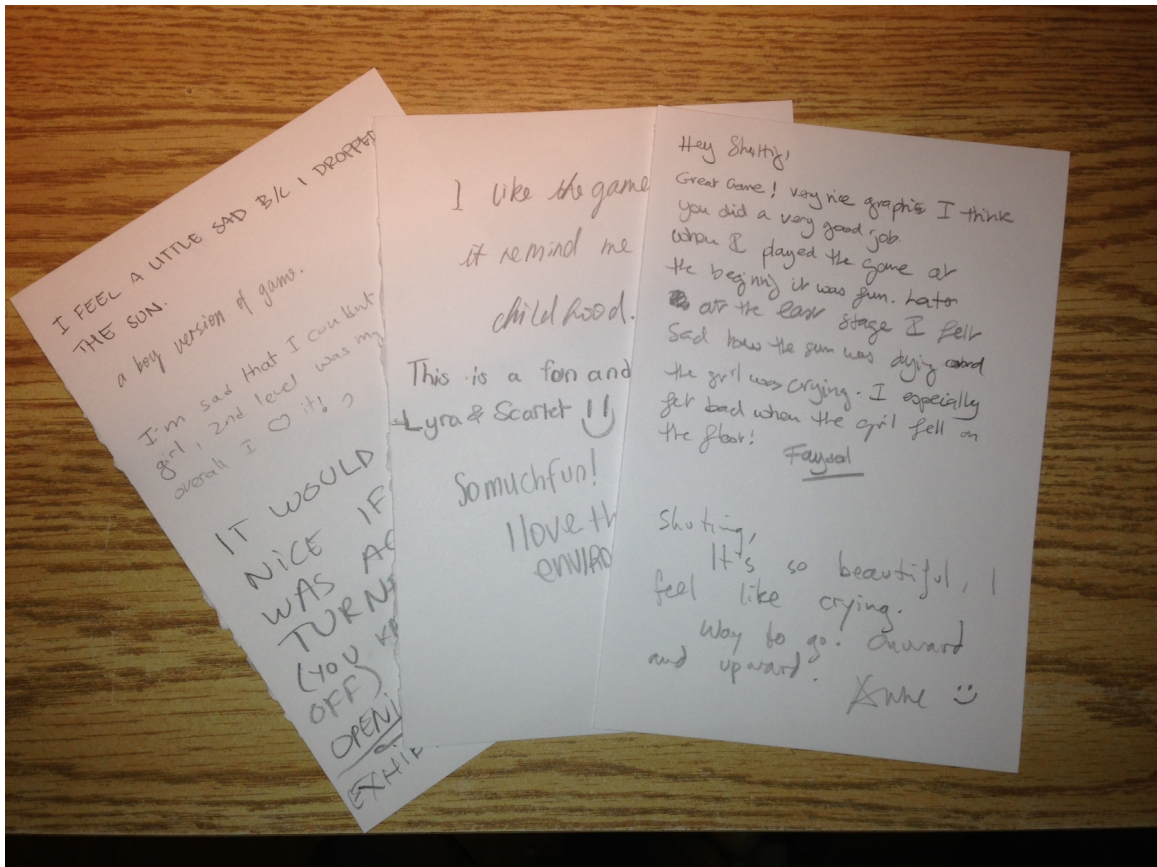 I FEEL A LITTLE SAD B/C I DROPPED
THE SUN.
a boy version of game.
I'm sad that I couldn't
girl, 2nd level was my
overall I ♡ it! :)
IT WOULD
NICE IF
WAS
TURN
(YOU
OFF)
OPENI
EXHI
I like the game
it remind me
child hood.
This is a fun and
Lyra & Scarlet
So much fun!
I love th
enviro
Hey Shuting,
Great Game! very nice graphics I think
you did a very good job.
when I played the game at
the beginnig it was fun. Later
at the last stage I felt
sad how the sun was dying and
the girl was crying. I especially
felt bad when the girl fell on
the floor!
Faysal
Shuting,
It's so beautiful, I
feel like crying.
Way to go! Onward
and upward.
Anne :)